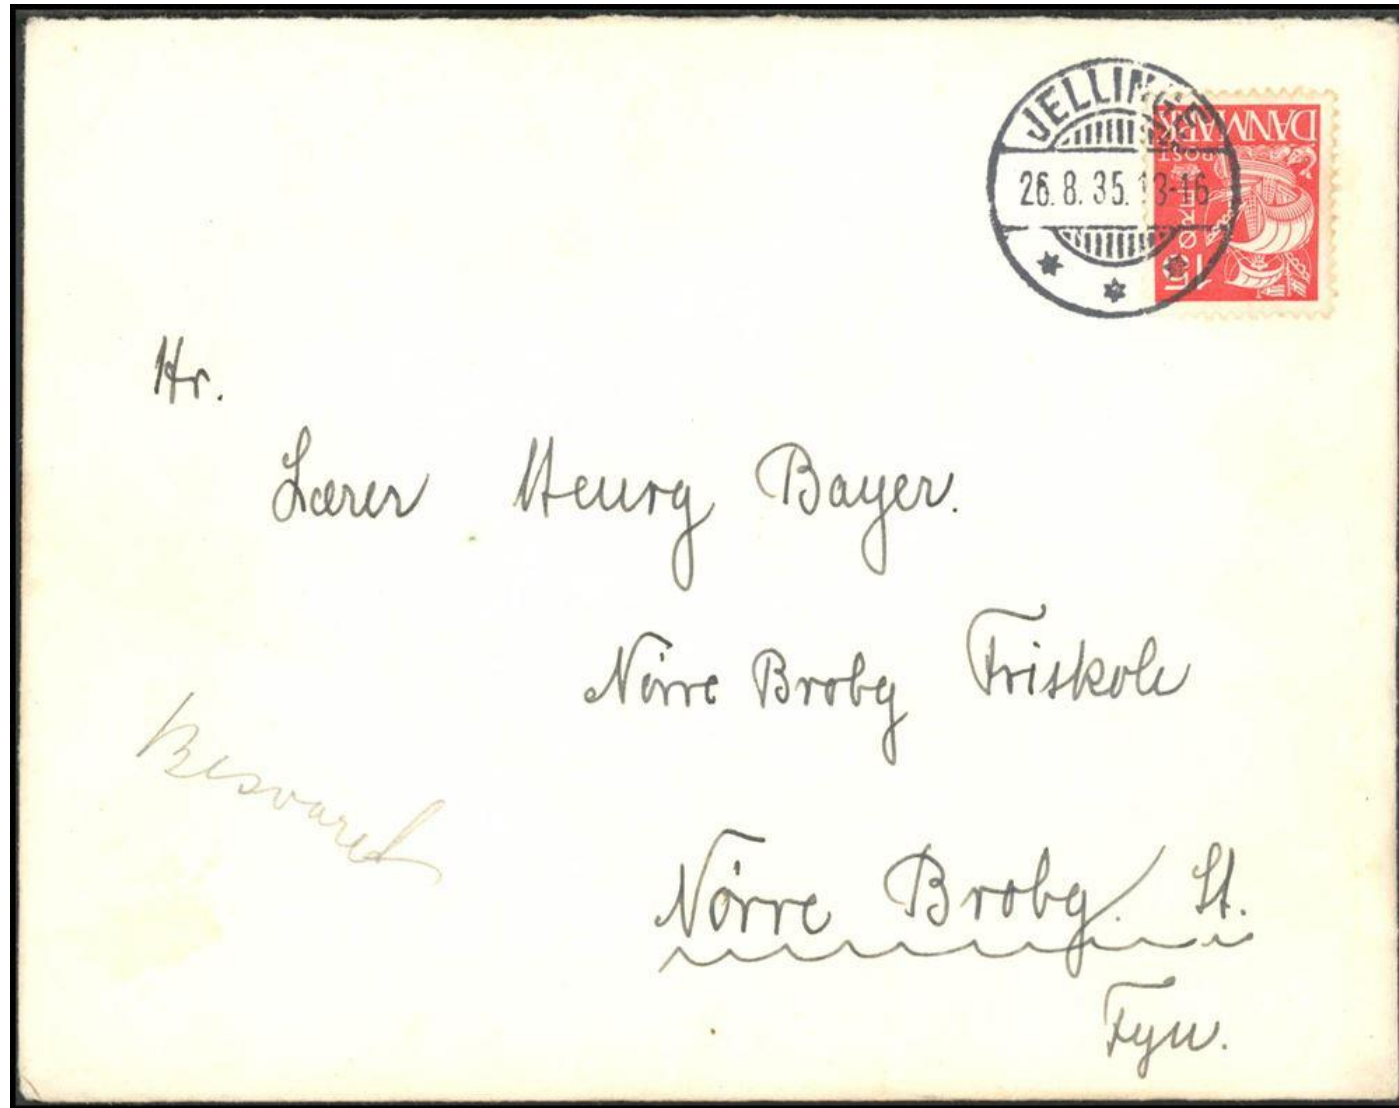 JELLINGE
26.8.35. 13-16
DANMARK
POST
15 ØRE
Hr.
Lærer Henry Bayer.
Nörre Broby Friskole
Besvaret
Nörre Broby. St.
Fyn.